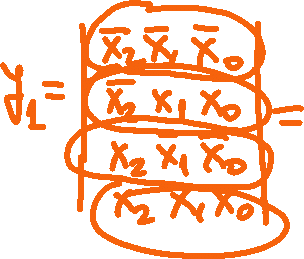 x̄₂ x̄₁ x̄₀
y₁ = x̄₂ x₁ x₀ =
x₂ x̄₁ x̄₀
x₂ x₁ x₀